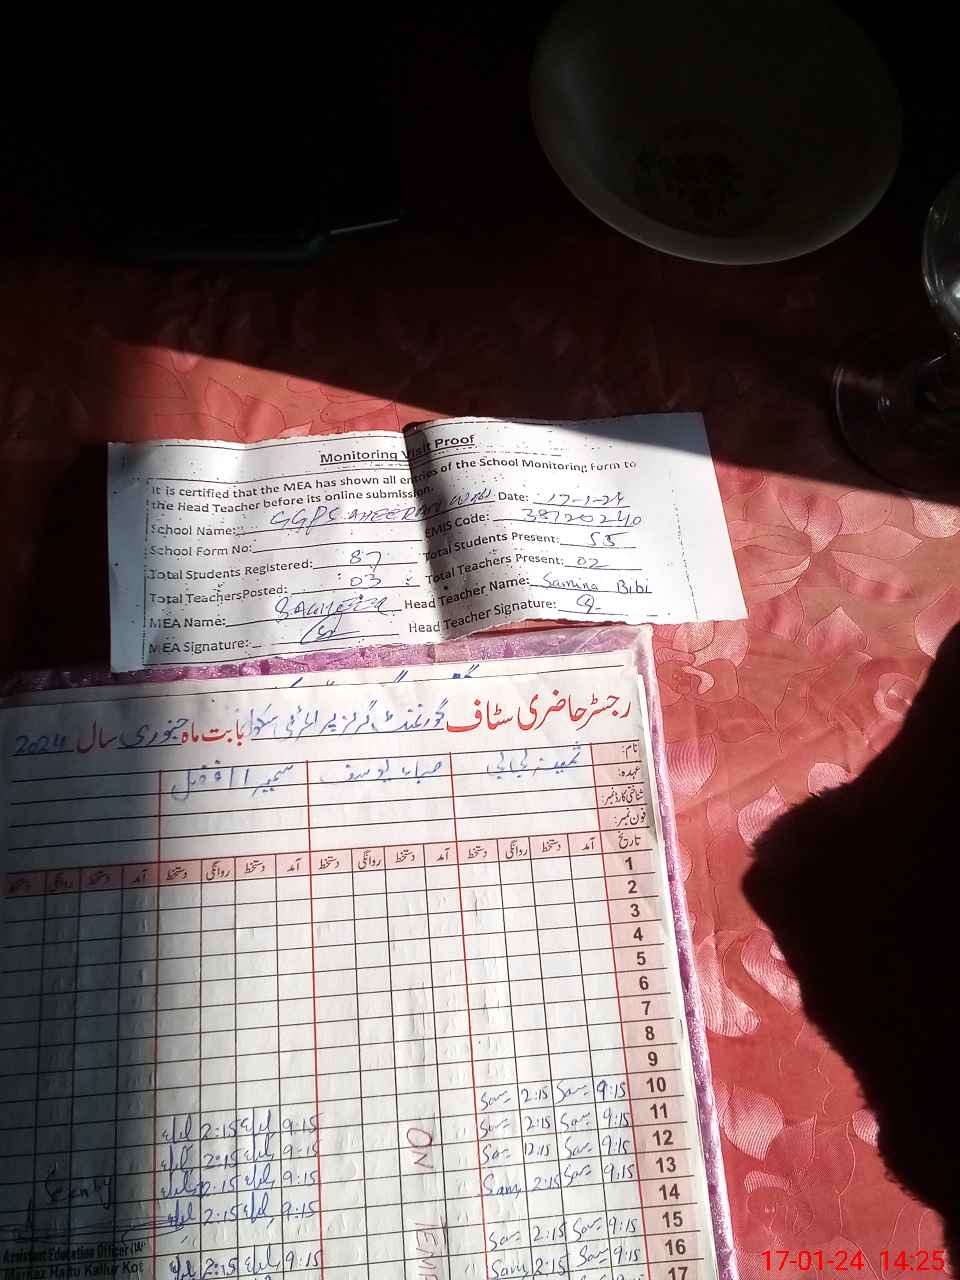 Monitoring Visit Proof
It is certified that the MEA has shown all entries of the School Monitoring Form to
the Head Teacher before its online submission.
School Name: GGPS Date: 17-1-24
School Form No: EMIS Code: 38720240
Total Students Registered: 87 Total Students Present: 55
Total TeachersPosted: 03 Total Teachers Present: 02
MEA Name: Head Teacher Name: Samina Bibi
MEA Signature: Head Teacher Signature:
رجسٹر حاضری سٹاف گورنمنٹ گرلز پرائمری سکول بابت ماہ جنوری سال 2024
نام: ثمینہ بی بی صباء یوسف سمیرا افضل
عہدہ:
شناختی کارڈ نمبر:
فون نمبر:
تاریخ آمد دستخط روانگی دستخط آمد دستخط روانگی دستخط آمد دستخط روانگی دستخط آمد دستخط روانگی دستخط
1
2
3
4
5
6
7
8
9
10 9:15 2:15
11 9:15 2:15 9:15 2:15
12 9:15 12:15 9:15 2:15
13 9:15 2:15 9:15 12:15
14 9:15 2:15
15 9:15 2:15
16 9:15 2:15 9:15 2:15
17
ON
Seen by
Assistant Education Officer (W)
Markaz Haitu Kallur Kot
17-01-24 14:25